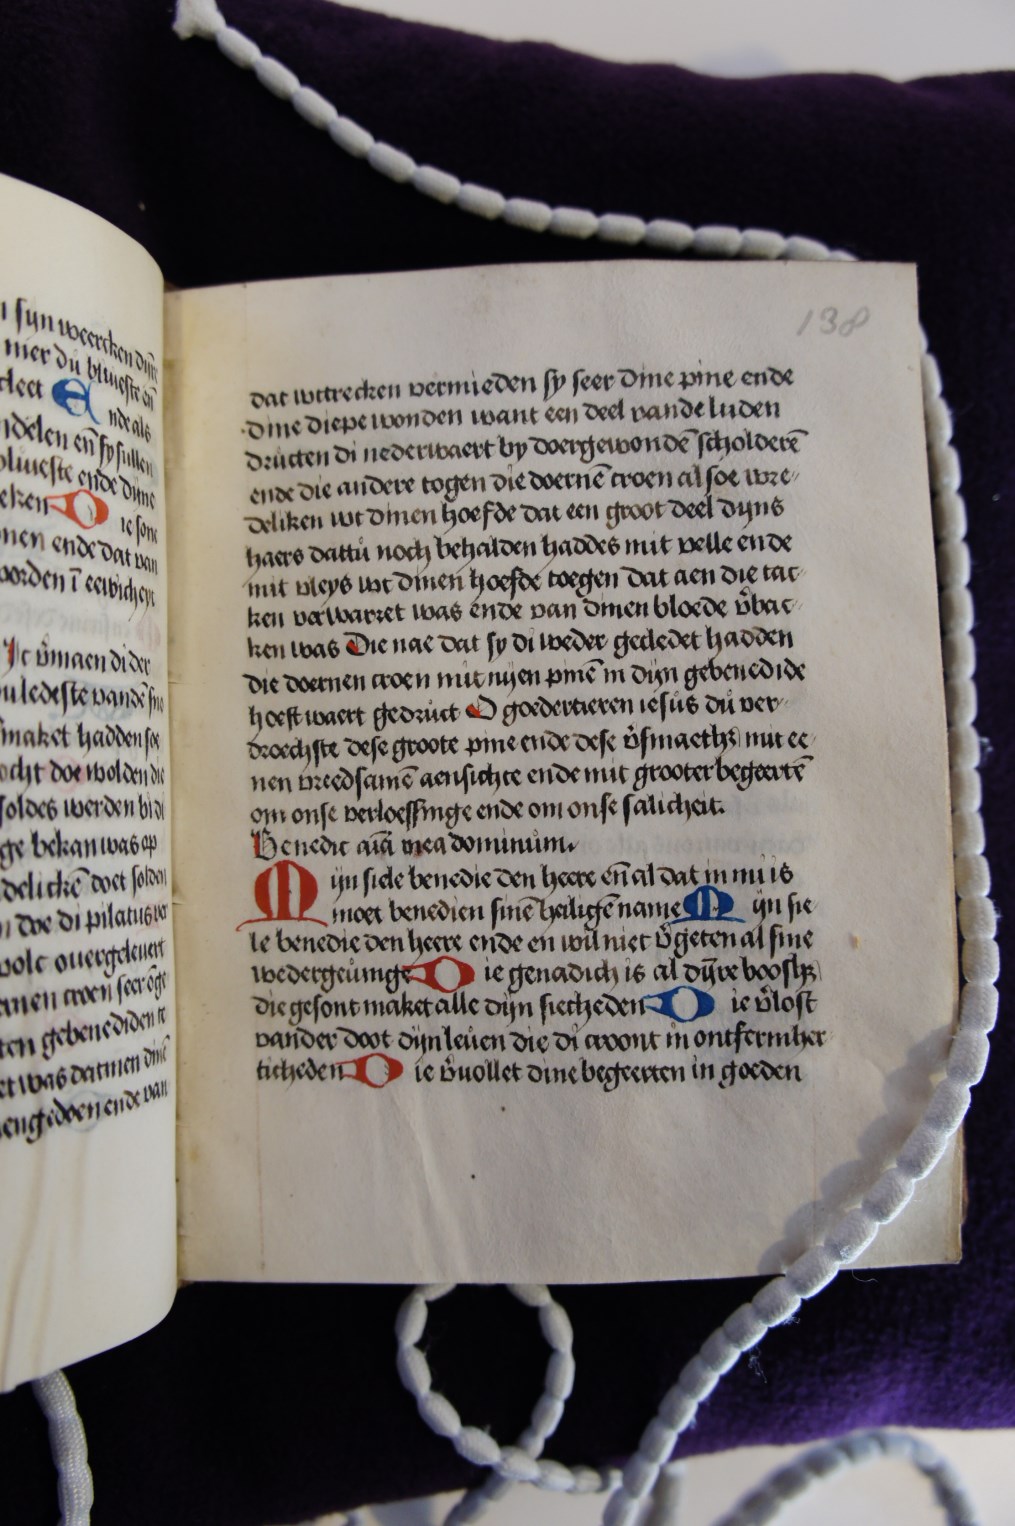 n syn weercken dijne
mer du bliueste en̄
cleet Ende als
ndelen en̄ sy sullen
bliueste ende dijne
eken Die sone
nen ende dat van
worden ī eewicheyt
Ic v̄maen di der
u ledeste vandē
maket hadden soe
ocht doe wolden die
soldes werden bi di
ge bekan was op
delickē doet solden
n doe di pilatus ver
volc ouergeleuert
rnen croen seer
ten gebenediden
et was datmen dinē
engedoen ende van
138
dat wttrecken vermieden sy seer dine pine ende
dine diepe wonden want een deel vande luden
dructen di nederwaert by doergewondē scholderē
ende die andere togen die doernē croen al soe wre-
deliken wt dinen hoefde dat een groot deel dijns
haers dattu noch behalden haddes mit velle ende
mit vleys wt dinen hoefde toegen dat aen die tac-
ken verwarret was ende van dinen bloede v̄bac-
ken was Die nae dat sy di weder gecledet hadden
die doernen croen mit nyen pinē in dijn gebenedide
hoeft waert gedruct O goedertieren iesus du ver-
droechste dese groote pine ende dese v̄smaethꝫ mit ee-
nen vreedsamē aensichte ende mit grooter begeertē
om onse verloessinge ende om onse salicheit.
Benedic aīa mea dominum.
Mijn siele benedie den heere en̄ al dat in mi is
moet benedien sinē heiligē name Mijn sie-
le benedie den heere ende en wil niet v̄geten al sine
wedergeuinge Die genadich is al dijnre boosþꝫ
die gesont maket alle dijn siecheden Die v̄lost
vander doot dijn leuen die di croont in ontfermher-
ticheden Die v̄uollet dine begeerten in goeden